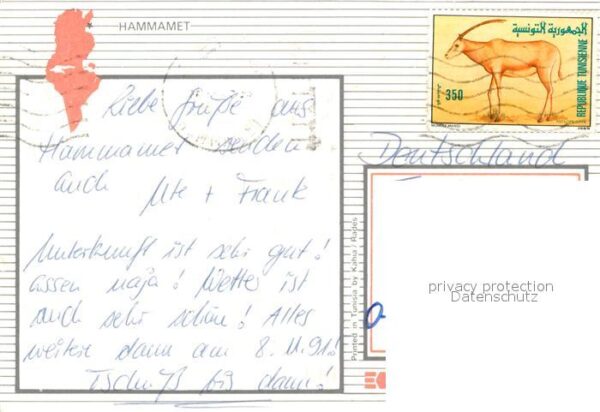 HAMMAMET
الجمهورية التونسية
REPUBLIQUE TUNISIENNE
350
Liebe Grüße aus
Hammamet senden
euch Ute + Frank
Deutschland
Unterkunft ist sehr gut!
Essen naja! Wetter ist
auch sehr schön! Alles
weitere dann am 8.11.91!
Tschüß bis dann!
Printed in Tunisia by Kahia / Rades
privacy protection
Datenschutz